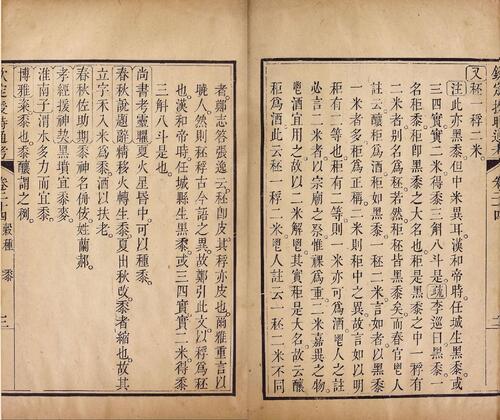 又秠一稃二米。
註此亦黑黍但中米異耳漢和帝時任城生黑黍或
三四實實二米得黍三斛八斗是。疏李巡曰黑黍一
名秬黍秬卽黑黍之大名也秠是黑黍之中一稃有
二米者別名爲秠若然秬秠皆黑黍矣而春官鬯人
註云釀秬爲酒秬如黑黍一秠二米言如者以黑黍
一米者多秬爲正稱二米則秬中之異故言如以明
秬有二等也秬有二等則一米亦可爲酒鬯人之註
必言二米者以宗廟之祭惟祼爲重二米嘉異之物
鬯酒宜用之故以二米解鬯其實秬是大名故云釀
秬爲酒此云秠一稃二米鬯人註云一秠二米不同
者。鄭志答張逸云秠卽皮其稃亦皮也。爾雅重言以
曉人然則秠稃古今語之異故鄭引此文以稃爲秠
也漢和帝時任城縣生黑黍。或三四實實二米得黍
三斛八斗是也。
尚書考靈曜夏火星昏中可以種黍。
春秋說題辭精移火轉生黍夏出秋改。黍者縮也。故其
立字禾入米爲黍。酒以扶老。
春秋佐助期黍神名姓蘭郝。
孝經援神契黑墳宜黍麥。
淮南子渭水多力而宜黍。
博雅粢黍也。釀謂之
欽定授時通考 卷二十四 穀種 黍 三